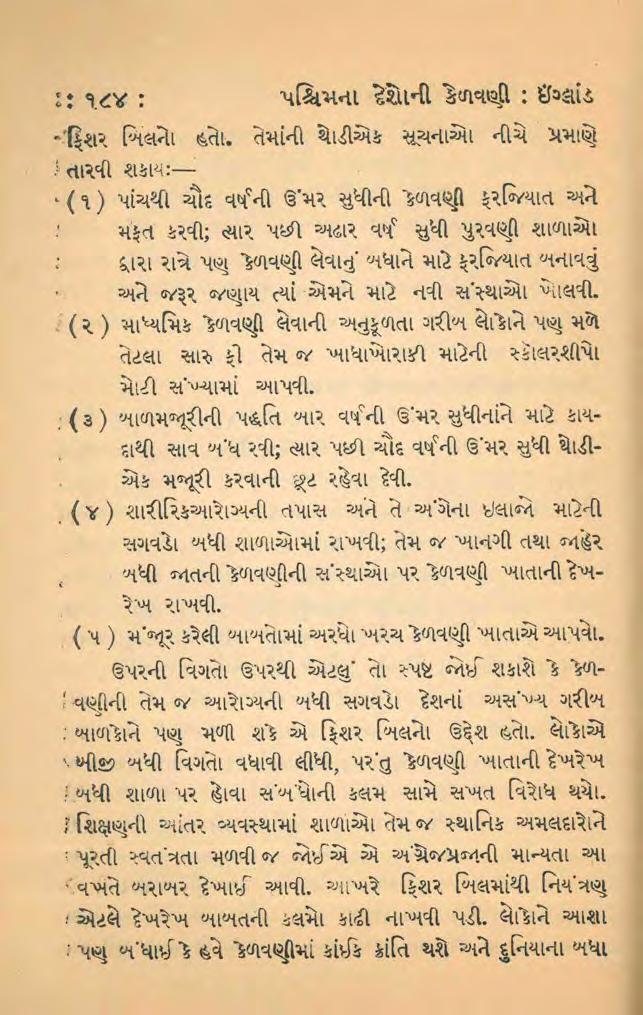 : ૧૮૪ : પશ્ચિમના દેશોની કેળવણી : ઇંગ્લાંડ
ફિશર બિલનો હતો. તેમાંની થોડીએક સૂચનાઓ નીચે પ્રમાણે
તારવી શકાયઃ—
(૧) પાંચથી ચૌદ વર્ષની ઉંમર સુધીની કેળવણી ફરજિયાત અને
મફત કરવી; ત્યાર પછી અઢાર વર્ષ સુધી પુરવણી શાળાઓ
દ્વારા રાત્રે પણ કેળવણી લેવાનું બધાને માટે ફરજિયાત બનાવવું
અને જરૂર જણાય ત્યાં એમને માટે નવી સંસ્થાઓ ખોલવી.
(૨) માધ્યમિક કેળવણી લેવાની અનુકૂળતા ગરીબ લોકોને પણ મળે
તેટલા સારુ ફી તેમ જ ખાધાખોરાકી માટેની સ્કૉલરશીપો
મોટી સંખ્યામાં આપવી.
(૩) બાળમજૂરીની પદ્ધતિ બાર વર્ષની ઉંમર સુધીનાંને માટે કાય-
દાથી સાવ બંધ રવી; ત્યાર પછી ચૌદ વર્ષની ઉંમર સુધી થોડી-
એક મજૂરી કરવાની છૂટ રહેવા દેવી.
(૪) શારીરિકઆરોગ્યની તપાસ અને તે અંગેના ઇલાજો માટેની
સગવડો બધી શાળાઓમાં રાખવી; તેમ જ ખાનગી તથા જાહેર
બધી જાતની કેળવણીની સંસ્થાઓ પર કેળવણી ખાતાની દેખ-
રેખ રાખવી.
(૫) મંજૂર કરેલી બાબતોમાં અરધો ખરચ કેળવણી ખાતાએ આપવો.
ઉપરની વિગતો ઉપરથી એટલું તો સ્પષ્ટ જોઈ શકાશે કે કેળ-
વણીની તેમ જ આરોગ્યની બધી સગવડો દેશનાં અસંખ્ય ગરીબ
બાળકોને પણ મળી શકે એ ફિશર બિલનો ઉદ્દેશ હતો. લોકોએ
બીજી બધી વિગતો વધાવી લીધી, પરંતુ કેળવણી ખાતાની દેખરેખ
બધી શાળા પર હોવા સંબંધોની કલમ સામે સખત વિરોધ થયો.
શિક્ષણની આંતર વ્યવસ્થામાં શાળાઓ તેમ જ સ્થાનિક અમલદારોને
પૂરતી સ્વતંત્રતા મળવી જ જોઈએ એ અંગ્રેજપ્રજાની માન્યતા આ
વખતે બરાબર દેખાઈ આવી. આખરે ફિશર બિલમાંથી નિયંત્રણ
એટલે દેખરેખ બાબતની કલમો કાઢી નાખવી પડી. લોકોને આશા
પણ બંધાઈ કે હવે કેળવણીમાં કાંઈક ક્રાંતિ થશે અને દુનિયાના બધા